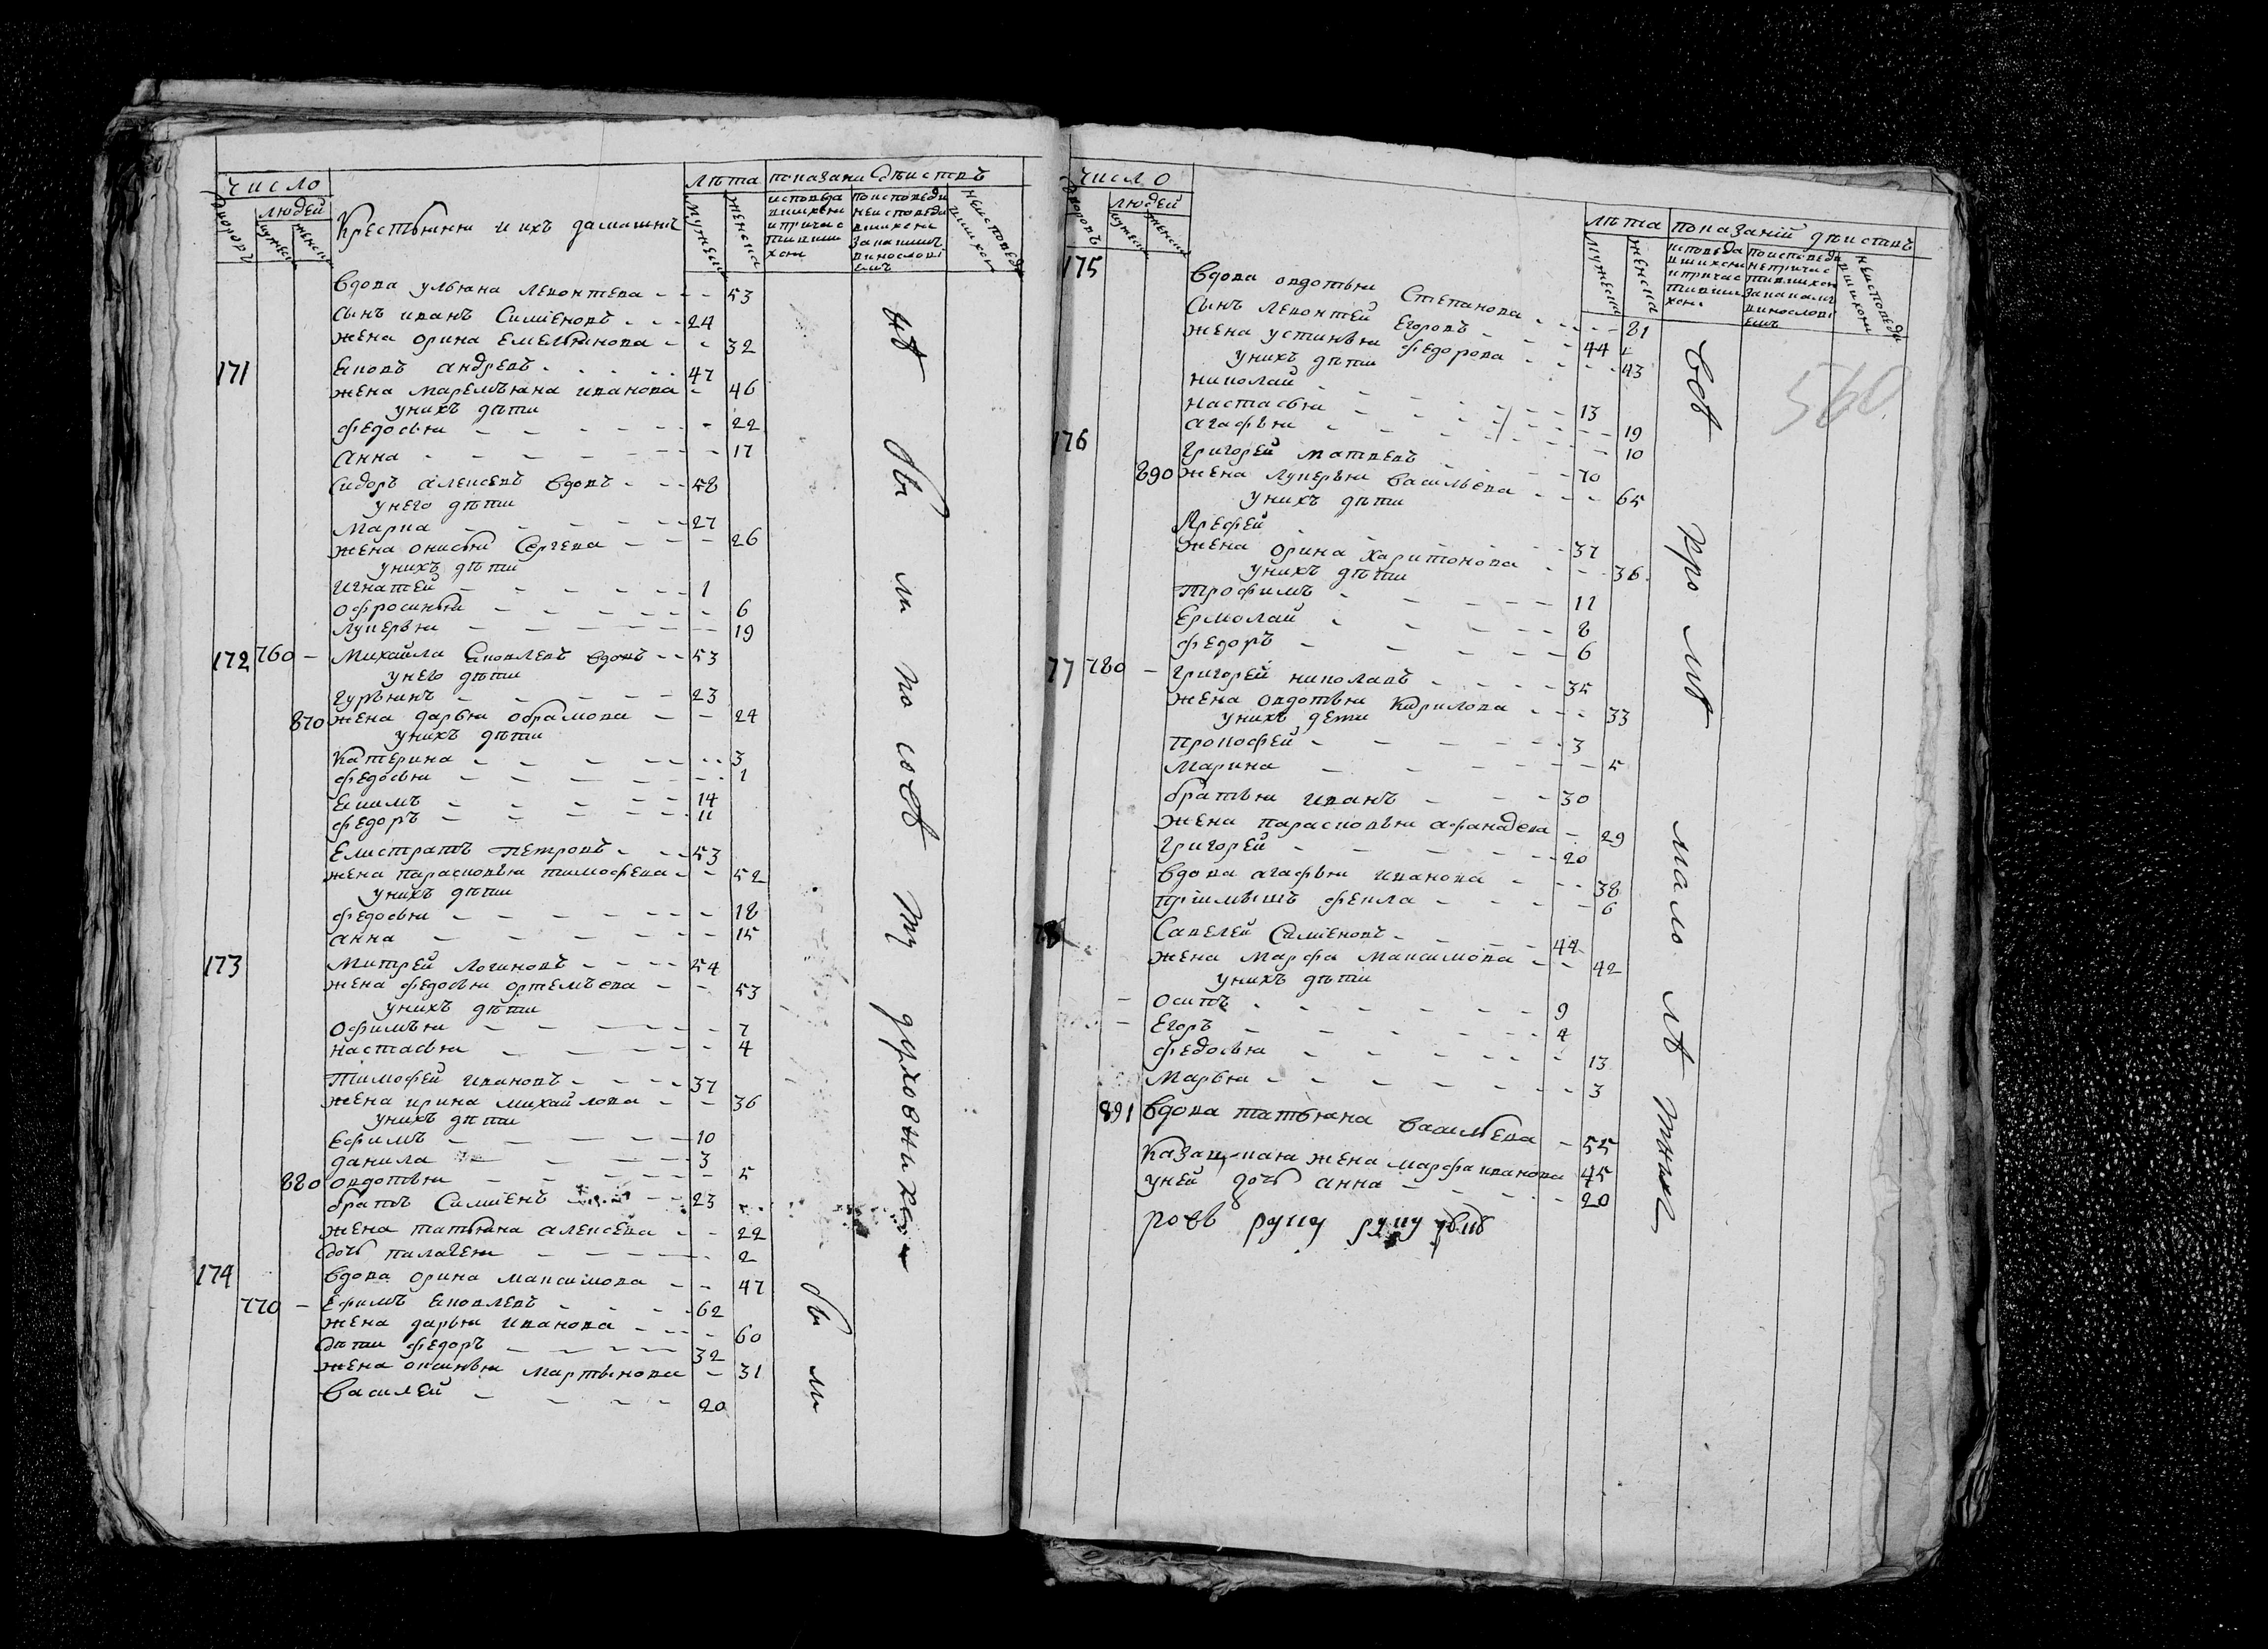 число
людей
дворовъ
мужеска
женска
Крестьяне и ихъ домашнiе
лѣта
мужеска
женска
показани дѣиствъ
исповѣда
вшихся
и причас
тивши
хся
неисповеда
вшихся
вдова ульяна левонтева - - - 53
сынъ иванъ Симiеновъ - - - 24
жена орина Емельянова - - 32
171 Яковъ андревъ - 47
жена маремьяна иванова - 46
унихъ дѣти
федосья - 22
Анна - 17
Сидоръ алексевъ вдовъ - - 58
унего дѣти
Марка - 27
жена онисья Сергева - - 26
унихъ дѣти
Игнатей - 1
офросинья - 6
лукерья - 19
172 760 - Михайла Яковлевъ вдовъ - - 53
унего дѣти
Гурьянъ - 23
870 жена дарья обрамова - - 24
унихъ дѣти
Катерина - 3
федосья - 1
Якимъ - 14
федоръ - 11
Елистратъ петровъ - 53
жена парасковья тимофева - - 52
унихъ дѣти
федосья - 18
анна - 15
173 Митрей логиновъ - 54
жена федосья ортемъева - - 53
унихъ дѣти
офимья - 7
настасья - 4
Тимофей ивановъ - 37
жена ирина михайлова - - 36
унихъ дѣти
Ефимъ - 10
данила - 3
880 овдотья - 5
братъ Симiенъ - 23
жена татьяна алексева - - 22
дочь палагея - 2
174 вдова орина максимова - - 47
770 - Ефимъ Яковлевъ - 62
жена дарья иванова - 60
дѣти федоръ - 32
жена оксинья мартынова - 31
василей - 20
были
духовнихъ
были
число
людей
дворовъ
мужеска
женска
лѣта
мужеска
женска
показанiй дѣиствъ
175 вдова овдотья Степанова - 81
сынъ левонтей Егоровъ - 44
жена устинья федорова - 43
унихъ дѣти
николай - 13
настасья - 19
агафья - 10
176 Григорей матвевъ - 70
890 жена лукерья васильева - 65
унихъ дѣти
Ярефей - 37
жена орина харитонова - 36
унихъ дѣти
трофимъ - 11
Ермолай - 8
федоръ - 6
77 780 - Григорей николавъ - 35
жена овдотья Кирилова - - 33
унихъ дети
прокофей - 3
Марина - 5
братья иванъ - 30
жена парасковья афанасева - 29
Григорей - 20
вдова агафья иванова - 38
прiимышъ фекла - 6
78 Савелей Симiеновъ - 44
жена марфа максимова - - 42
унихъ дѣти
осипъ - 9
Егоръ - 4
федосья - 13
Марья - 3
891 вдова татьяна васильева - 55
Казацкая жена марфа иванова 45
уней дочь анна - 20
всѣ
кро мѣ
мало лѣ тных
560